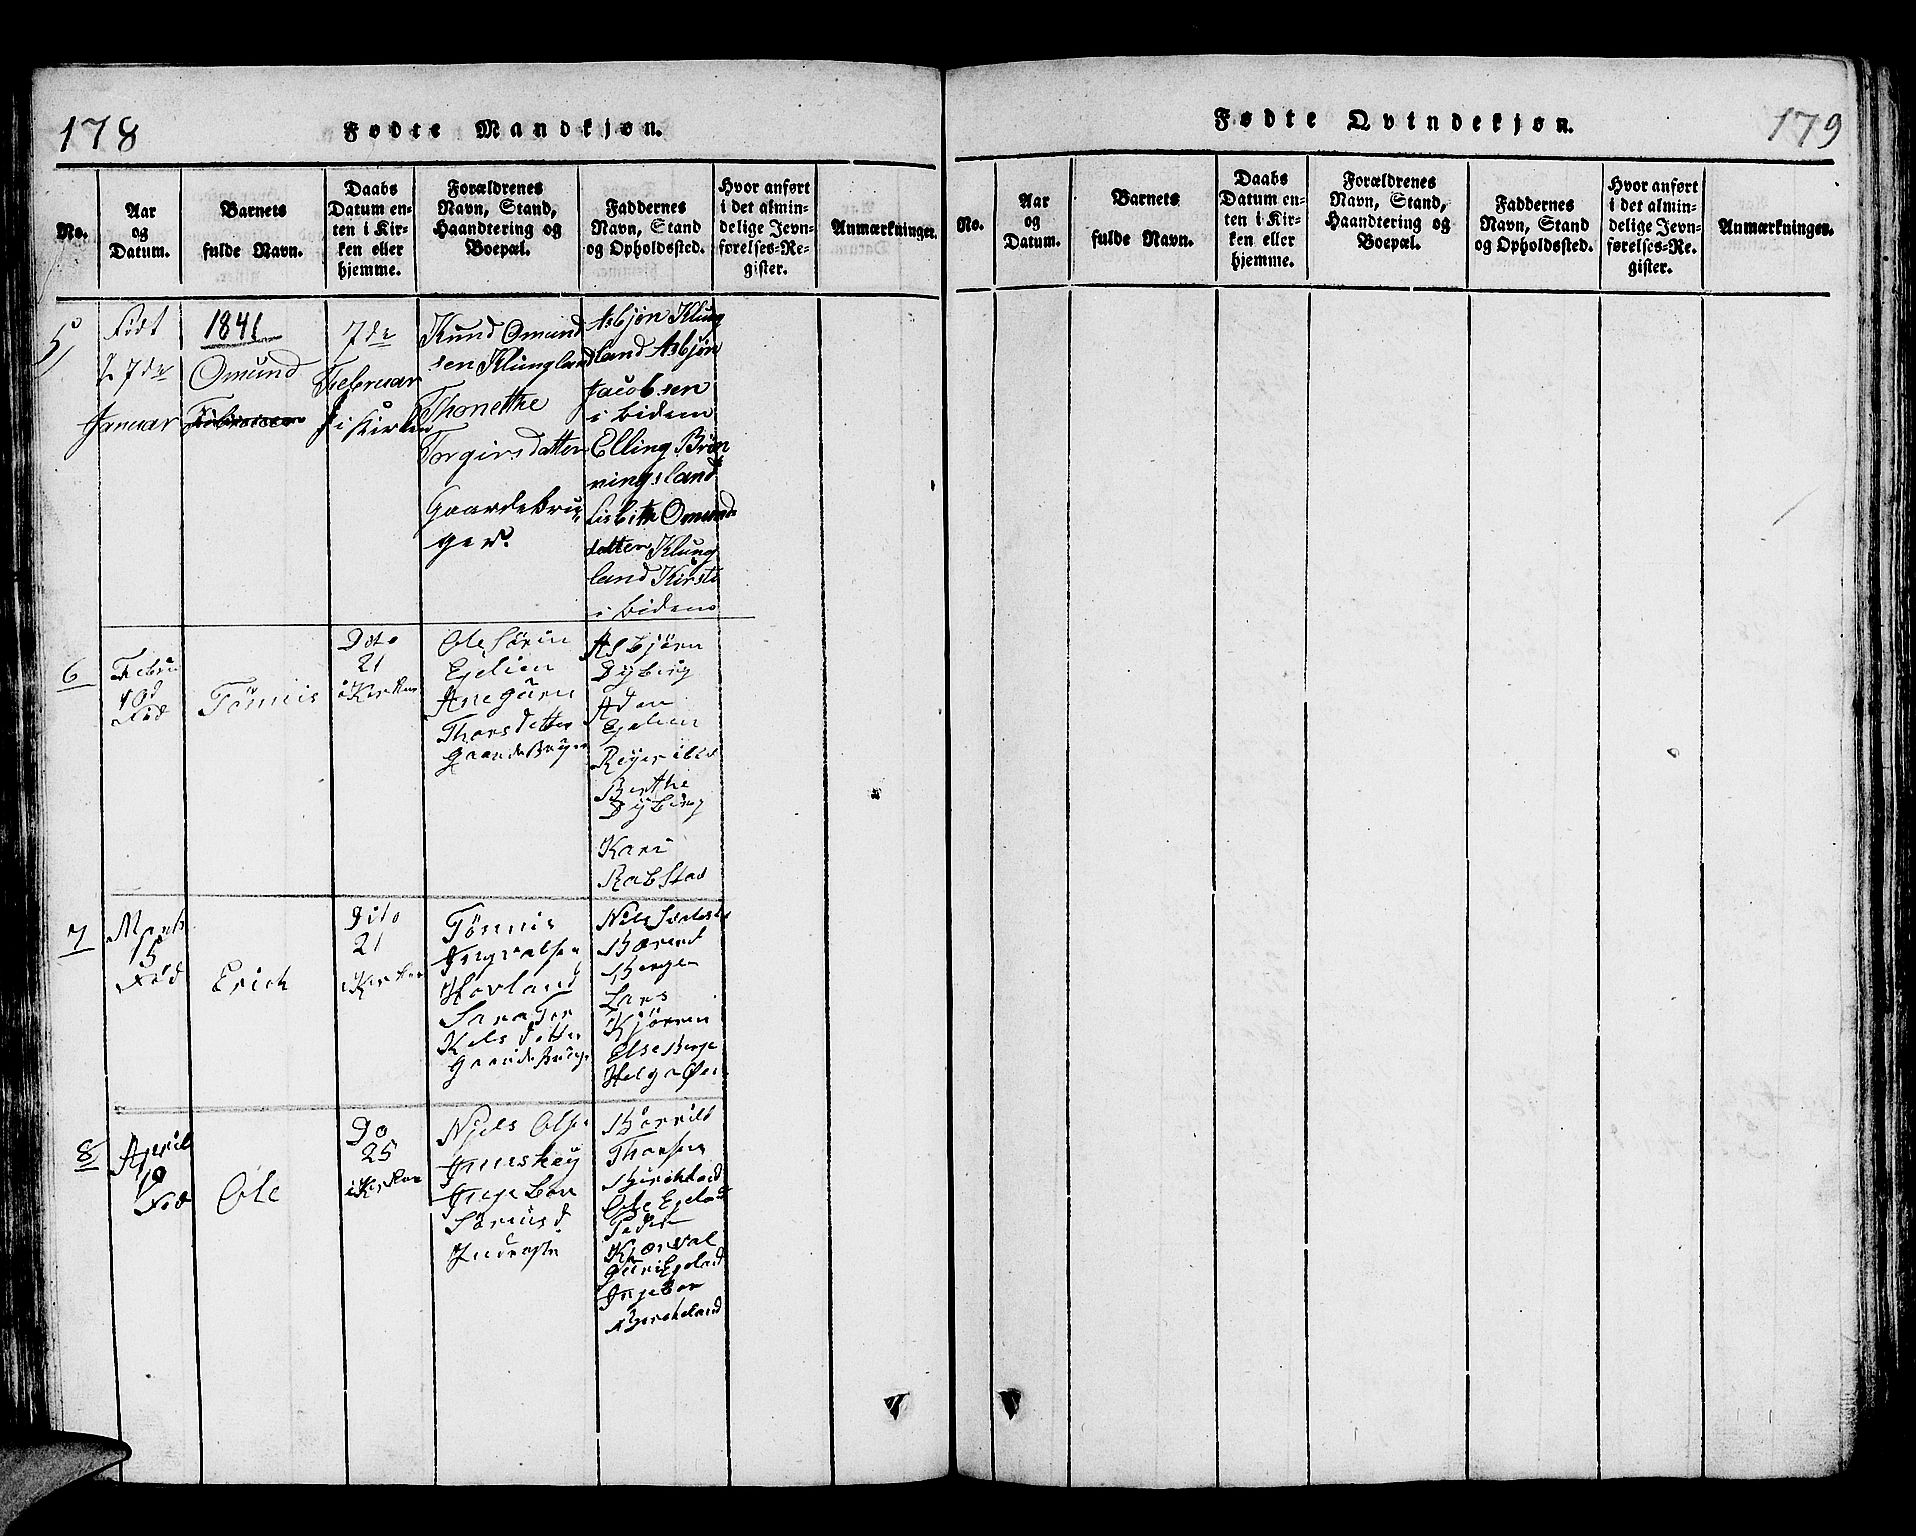 178
Fødte Mandkjøn.
No.
Aar
og
Datum.
Barnets
fulde Navn.
Daabs
Datum en=
ten i Kir=
ken eller
hjemme.
Forældrenes
Navn, Stand,
Haandtering og
Boepæl.
Faddernes
Navn, Stand
og Opholdssted.
Hvor anført
i det almin=
delige Jevn=
førelses=Re=
gister.
Anmærkninger.
5
Født
7de
Januar
1841
Omund
7de
Februar
i Kirken
Knud Omund
sen Klungland
Thonette
Torgirsdatter
Gaardebru=
ger.
Asbjøn Klung
land Asbjøn
Jacobsen
ibidem
Elling Brøn
ningsland
Lisbith Omund
datter Klung
land Kirsti
ibidem
6
Febru
Fød
Tönnis
Dito
21
i Kirken
Ole Sörin
Egelien
Ane Gurn
Thorsdatter
Asbjörn
Dÿbing
Aden
Egelien
Berthe
Dÿbing
Kari
Rabstad
7
15
Fød
Erich
Dito
21
i Kirken
Tönnis
Ingvalsen
Hovland
Sara Ter
Kelsdatter
Nils
Berge
Lars
Kjörren
Else Berge
Helga
8
April
Fød
Ole
Do
25
i Kirken
Njels Olsen
Ingebor
Thorsen
Birckland
Ole Egeland
Peder
Kjærval
Guri Egeland
Ingebor
Berckeland
Fødte Qvindekjøn.
179
No.
Aar
og
Datum.
Barnets
fulde Navn.
Daabs
Datum en=
ten i Kir=
ken eller
hjemme.
Forældrenes
Navn, Stand,
Haandtering og
Boepæl.
Faddernes
Navn, Stand
og Opholdssted.
Hvor anført
i det almin=
delige Jevn=
førelses=Re=
gister.
Anmærkninger.